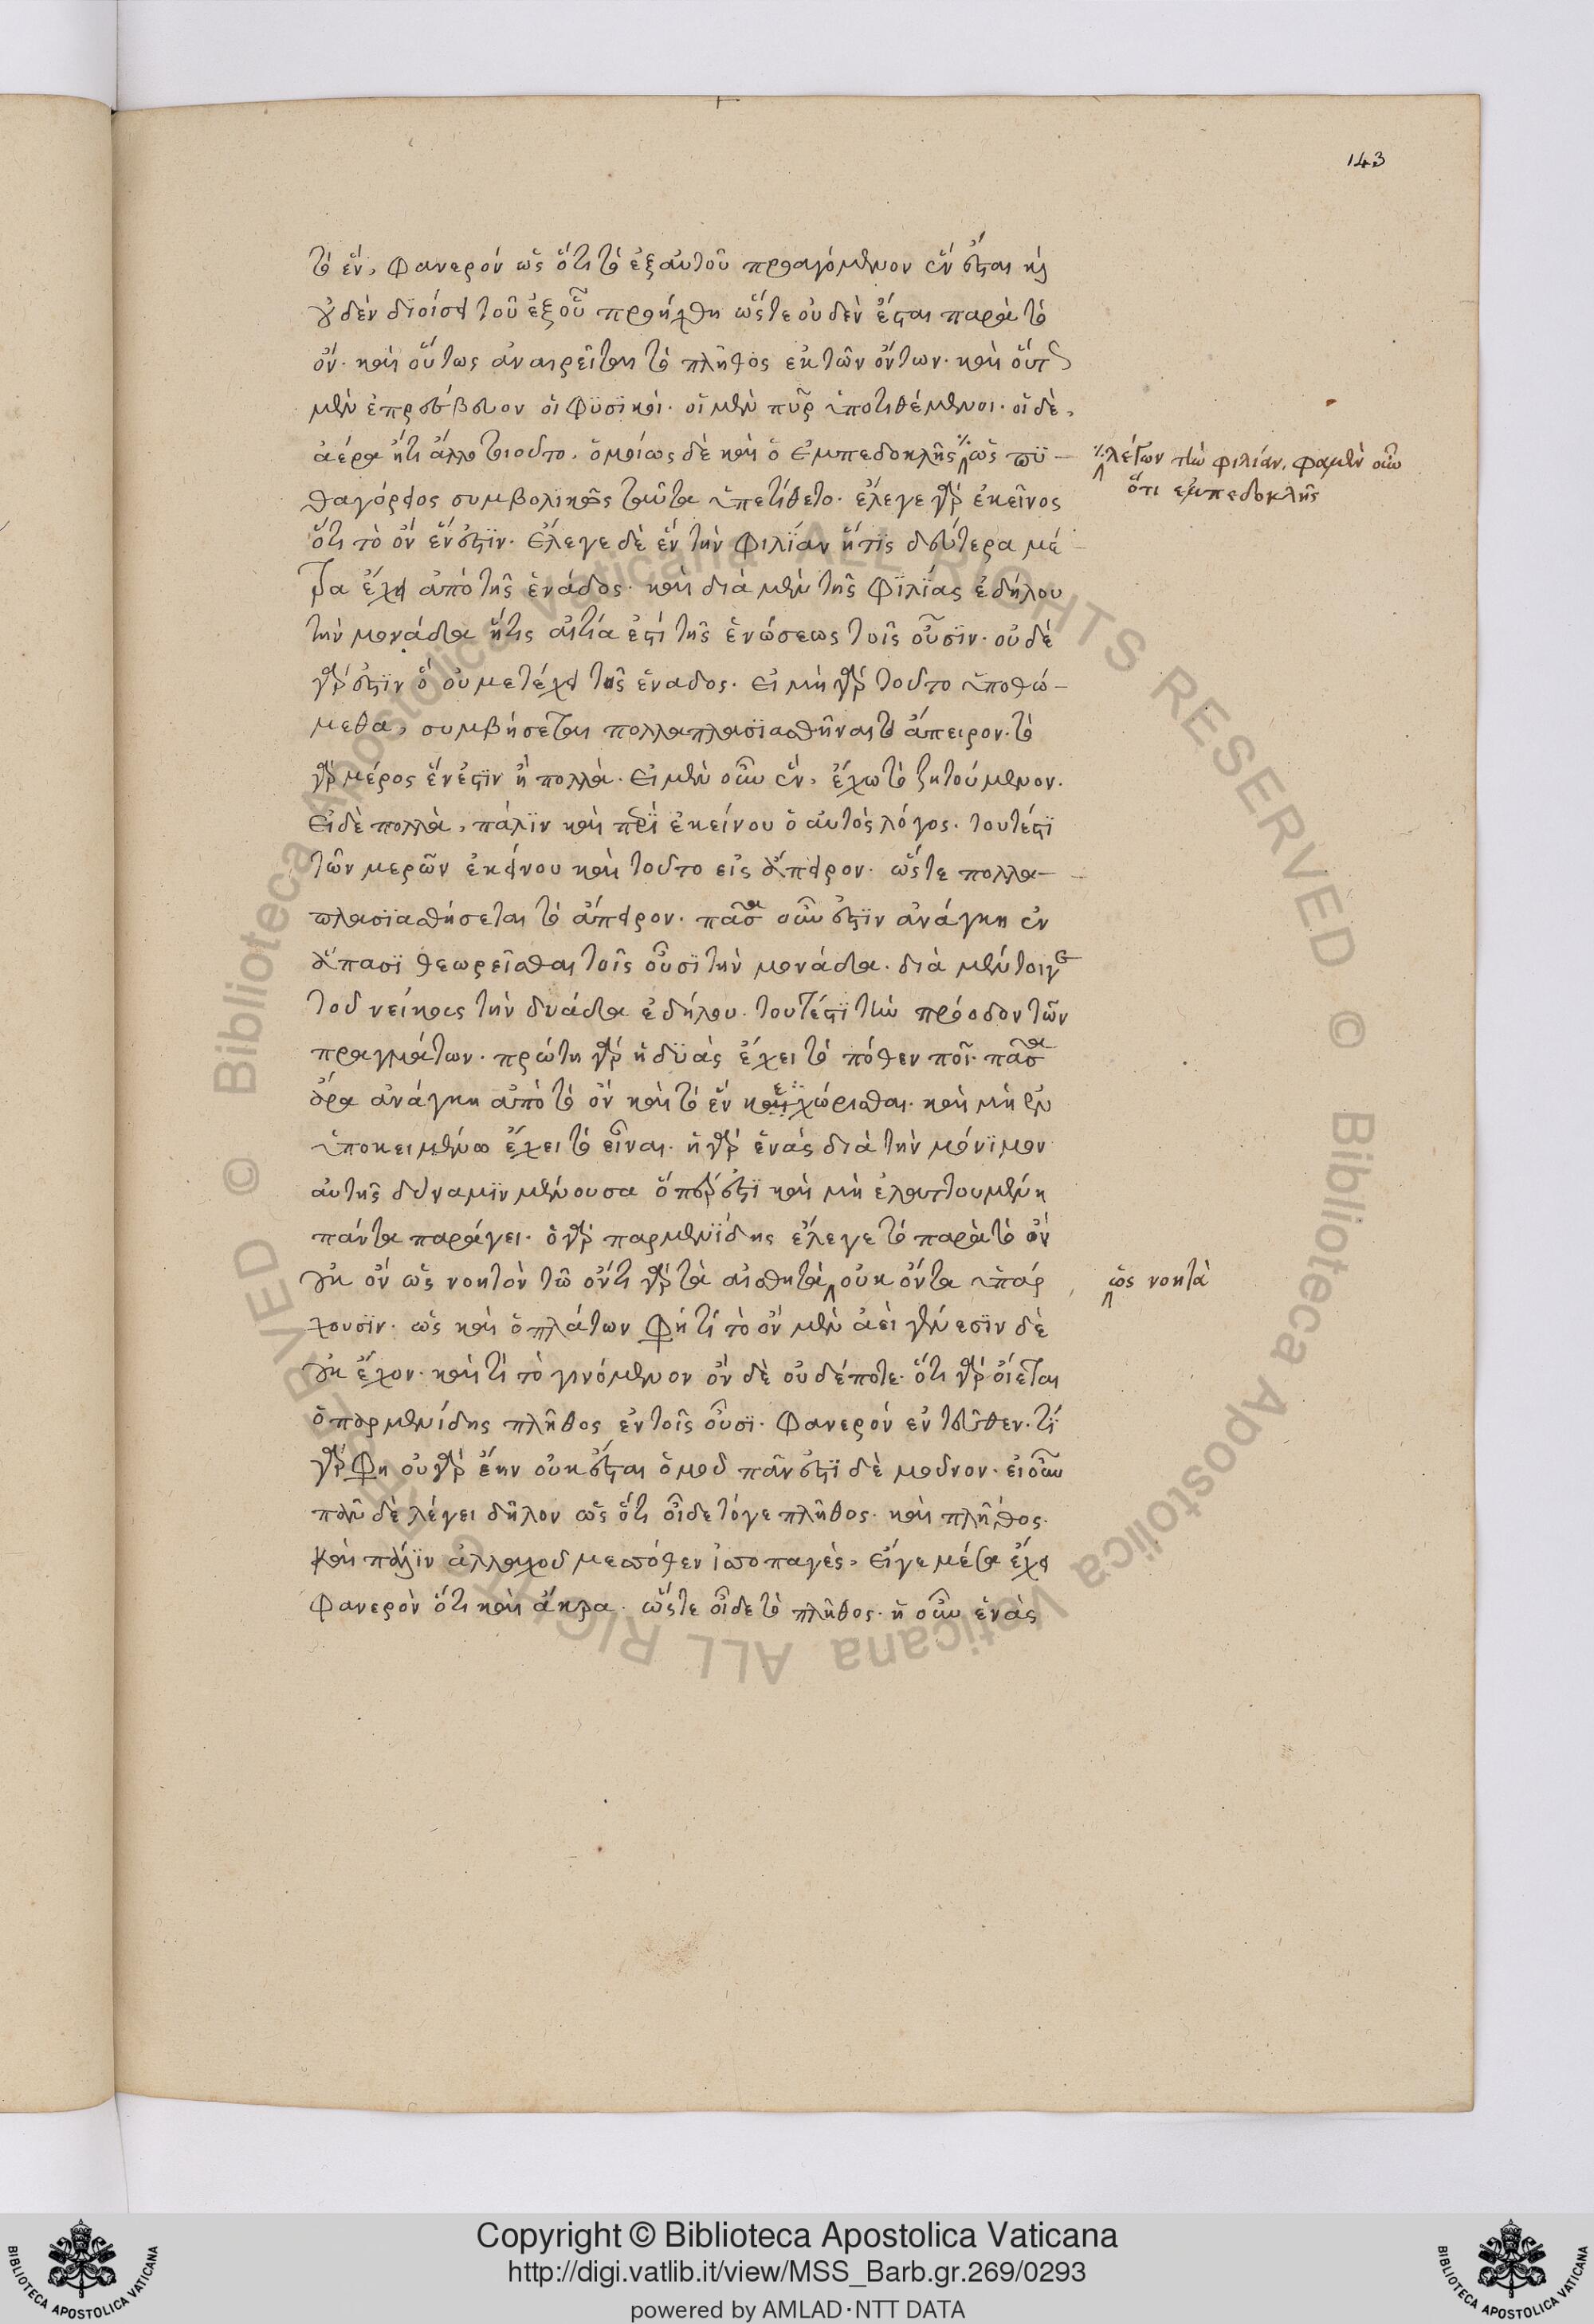 143
τὸ ἕν, φανερὸν ὡς ὅτι τὸ ἐξ αὐτοῦ προαγόμενον ἕν ἔσται καὶ
οὐδὲν διοίσει τοῦ ἐξ οὗ προήχθη ὥστε οὐδὲν ἔσται παρὰ τὸ
ὄν. καὶ οὕτως ἀναιρεῖται τὸ πλῆθος ἐκ τῶν ὄντων. καὶ οὕτω
μὲν ἐπρέσβευον οἱ φϋσϊκοὶ. οἱ μὲν πῦρ ὑποτιθέμενοι. οἱ δὲ,
ἀέρα ἤτι ἄλλο τιοῦτο. ὁμοίως δὲ καὶ ὁ ἐμπεδοκλῆς ὡς πϋ-
λέγων τὴν φιλίαν, φαμὲν οὖν
ὅτι ἐμπεδοκλῆς
θαγόρειος συμβολϊκῶς ταῦτα ὑπετίθετο. ἔλεγε γὰρ ἐκεῖνος
ὅτι τὸ ὄν ἕν ἐστϊν. ἔλεγε δὲ ἕν τὴν φιλϊαν ἥτϊς δεύτερα μέ-
τρα ἔχει ἀπὸ τῆς ἑνάδος. καὶ διὰ μὲν τῆς φϊλϊας ἐδήλου
τὴν μονάδα ἥτις αἰτία ἐστὶ τῆς ἑνώσεως τοῖς οὖσϊν. οὐδὲ
γὰρ ἐστϊν ὅ οὐ μετέχει τῆς ἕναδος. εἰ μὴ γὰρ τοῦτο ὑποθώ-
μεθα, συμβήσεται πολλαπλασϊασθῆναι τὸ ἄπειρον. τὸ
γὰρ μέρος ἕν ἐστϊν ἢ πολλὰ. εἰ μὲν οὖν ἕν, ἔχω τὸ ζητούμενον.
εἰ δὲ πολλὰ, πάλϊν καὶ περὶ ἐκείνου ὁ αὐτὸς λόγος. τουτέστϊ
τῶν μερῶν ἐκείνου καὶ τοῦτο εἰς ἄπειρον. ὥστε πολλα-
πλασϊασθήσεται τὸ ἄπειρον. πᾶσα οὖν ἐστϊν ἀνάγκη ἐν
ἅπασϊ θεωρεῖσθαι τοῖς οὖσϊ τὴν μονάδα. διὰ μέντοιγε
τοῦ νείκους τὴν δυάδα ἐδήλου. τουτέστϊ τὴν πρόοδον τῶν
πραγμάτων. πρώτη γὰρ ἡ δϋὰς ἔχει τὸ πόθεν ποῖ. πᾶσα
ἄρα ἀνάγκη ἀπὸ τὸ ὄν καὶ τὸ ἕν χώρισθαι. καὶ μὴ ἐν
ὑποκειμένω ἔχει τὸ εἶναι. ἡ γὰρ ἑνάς διὰ τὴν μόνϊμον
αὐτῆς δύναμϊν μένουσα ὅπερ ἐστϊ καὶ μὴ ἐλαττουμένη
πάντα παράγει. ὁ γὰρ παρμενϊδης ἔλεγε τὸ παρὰ τὸ ὄν
οὐκ ὄν ὡς νοητὸν τῶ ὄντι γὰρ τὰ αἰσθητὰ οὐκ ὄντα ὑπάρ
ὡς νοητὰ
χουσϊν. ὡς καὶ ὁ πλάτων φη τί τὸ ὄν μὲν ἀεὶ γένεσϊν δὲ
οὐκ ἔχον. καὶ τί τὸ γινόμενον ὄν δὲ οὐδέποτε. ὅτι γὰρ οἴεται
ὁ παρμενίδης πλῆθος ἐν τοῖς οὖσϊ. φανερόν ἐντεῦθεν. τϊ
γὰρ φη οὐ γὰρ ἔην οὐκ ἔσται ὁμοῦ πᾶν ἐστϊ δὲ μοῦνον. εἰ οὖν
πᾶν δὲ λέγει δῆλον ὡς ὅτι οἶδε τόγε πλῆθος. καὶ πλῆθος.
καὶ πάλϊν ἀλλαχοῦ μεσόθεν ἰσοπαγὲς, εἴγε μέσα ἔχει
φανερὸν ὅτι καὶ ἄκρα. ὥστε οἶδε τὸ πλῆθος. ἡ οὖν ἑνὰς
Copyright © Biblioteca Apostolica Vaticana
http://digi.vatlib.it/view/MSS_Barb.gr.269/0293
powered by AMLAD·NTT DATA
BIBLIOTECA APOSTOLICA VATICANA
BIBLIOTECA APOSTOLICA VATICANA
© Biblioteca Apostolica Vaticana ALL RIGHTS RESERVED
© Biblioteca Apostolica Vaticana ALL RIGHTS RESERVED